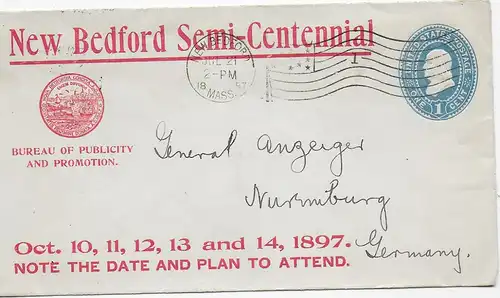 New Bedford Semi-Centennial
NEW BEDFORD
JUL 21
2-PM
18 97
MASS.
1
UNITED STATES POSTAGE
ONE 1 CENT
BUREAU OF PUBLICITY
AND PROMOTION.
General Anzeiger
Nuremburg
Germany.
Oct. 10, 11, 12, 13 and 14, 1897.
NOTE THE DATE AND PLAN TO ATTEND.